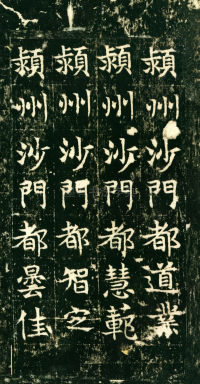 潁州沙門都道業
潁州沙門都慧範
潁州沙門都智定
潁州沙門都曇佳